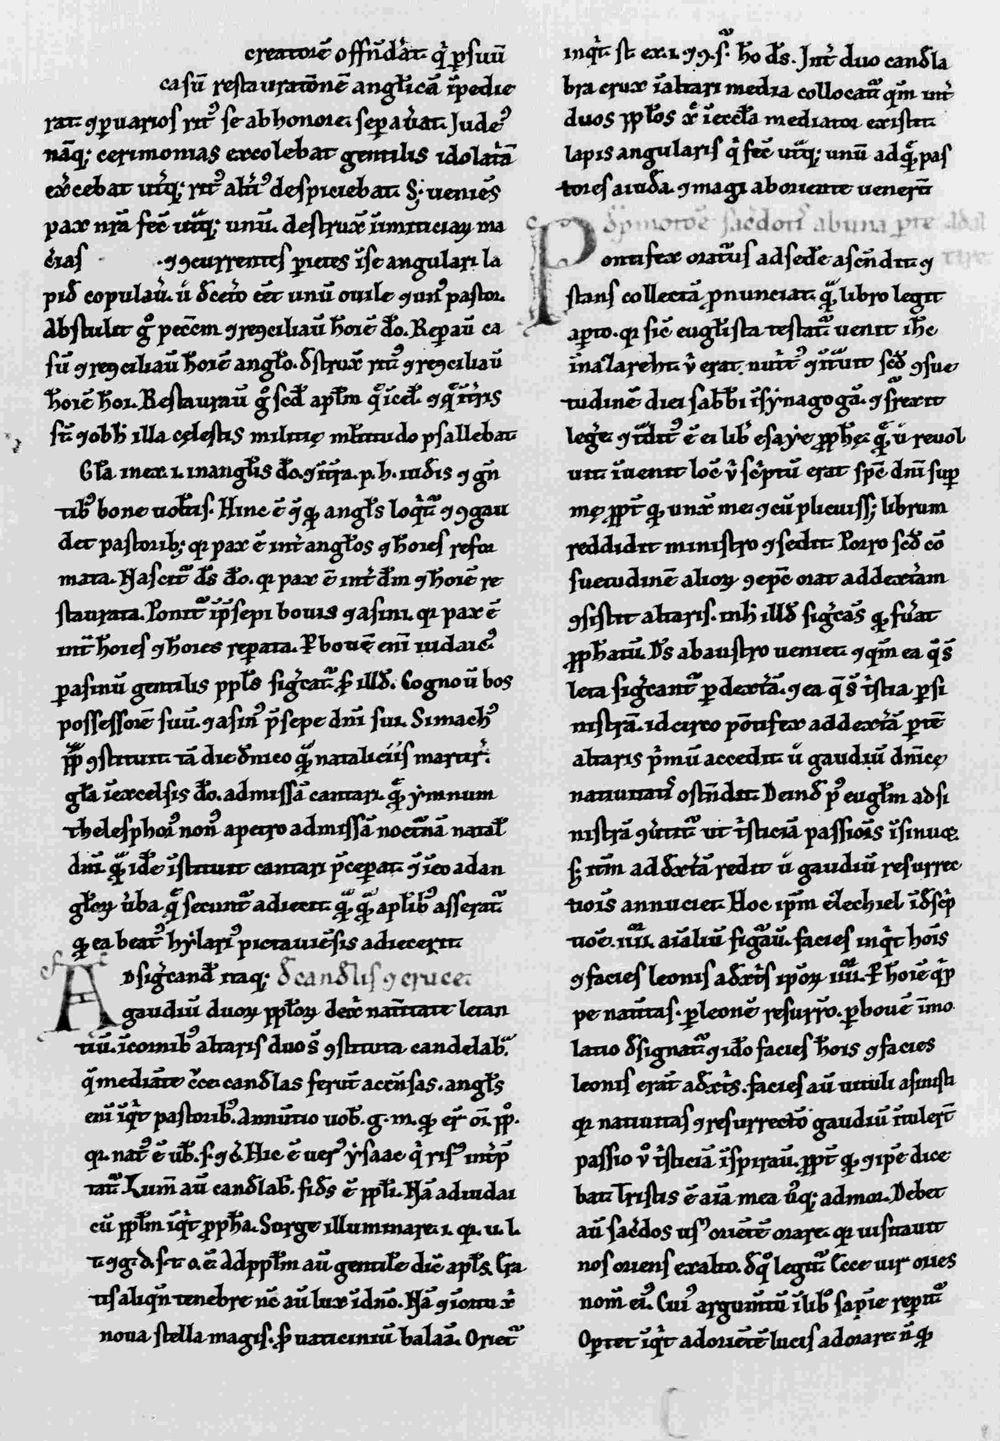 creatorē offñdat q' p suū
casū restauratōnē anglicā īpedie
rat. 9 p uarios rit⁹ se ab honore sepaūat. Jude⁹
nāq; cerimonias excolebat gentilis idolatā
ex'cebat utq; rit⁹ alti⁹ despiciebat. S; ueniēs
pax nrā fec̄ utq; unū. destrux̄ īimiticiaꝝ ma
c̄ias 9currentes pietes ī se angulari la
pid̄ copulaū. ū dcet̄o eēt unū ouile 9 un⁹ pastor.
Abstulit gͦ pecc̄m 9 re9ciliaū hōīē dō. Repaū ca
sū 9 re9ciliaū hōīē anglō. dstrux̄ rit⁹ 9 re9ciliaū
hōīē hōī. Restauraū gͦ scd̄ aplm̄ q̄ ī cel̄. 9 q̄ ī t̄ris
st̄ 9 ob h' illa cęlestis militię mltitudo psallebat
Gl̄a in ex̄. i. in angl̄is dō. 9 ī t̄ra. p. h. iudīs 9 gn̄
tib⁹ bone uolt̄is. Hinc ē q̄ angl̄s loq̄t 9 9gau
det pastorib; qr pax ē int' angl̄os 9 hōīes refor
mata. Nascit̄ ds̄ dō. qr pax ē int' dm̄ 9 hōīē re
staurata. Ponit̄ ī psepi bouis 9 asini. qr pax ē
int̄ hōīes 9 hōīes reparata. P bouē enī iudaic⁹
p asinū gentilis ppl̄s figc̄at̄ ꝓ illd̄. Cognoū bos
possessorē suū. 9 asin⁹ psepe dnī sui. Simach⁹
pp̄ 9stituit. tā die dnico q̄ nataliciis martir̄.
gl̄a ī excelsis dō. admissā cantari. q̄ ymnum
thelesphor⁹ non⁹ a petro ad missā noct'nā natal̄
dnī. q̄ īde īstituit cantari p̄cepat. 9 ī eo ad an
gl̄oꝝ uba q̄ secunt̄ adiecit. q̄ q̄ aplib⁹ asserat̄
q̄ ea beat⁹ hylari⁹ pictauiēsis adiecerit
Adsigc̄and̄ itaq; d̄ candl̄is 9 cruce.
gaudiū duoꝝ ppl̄oꝝ de x̄ natītate letan
tiū. ī cornib⁹ altaris duos̄ 9stituta candelab̄
q̄ mediāte c̄ce candl̄as ferūt accēnsas. angl̄s
enī īqt̄ pastorib⁹. Annūtio uob̄. g. m. q̄ er̄ oī. pp̄.
qr. nat⁹ ē ūb̄. s. 9 c̄. Hic ē uer⁹ ysaac q' ris⁹ int̄p
tat̄. Lum̄ aū candl̄ab̄. fid̄s ē ppl̄i. Nā ad iudai
cū ppl̄m īqt̄ ppha. Surge illuminare. i. qr. u. l.
t. 9 g. d. s. t. o. ē. Ad ppl̄m aū gentilē dic̄ apl̄s. Era
tis aliqn̄ tenebre nc̄ aū lux ī dno. Nā 9 ī ortu x̄
noua stella magis. ꝓ uaticiniū balaā. Oriet̄
inqt̄. st. ex. i. 9 9. s. hō ds̄. Int' duo candla
bra crux ī altari media collocat̄ qm̄ int'
duos ppl̄os x̄ ī eccl̄a mediator existit.
lapis angularis q' fec̄ utq; unū ad q̄ pas
tores a iuda 9 magi ab oriente uenerūt
D̄ pmotōe sacdotis ab una pte ad al
tiꝰ
Pontifex oratus ad sedē ascn̄dit 9
stans collectā pnunciat. q̄ libro legit
apto. qr sic̄ eugl̄ista testat̄ uenit ihc̄
ī naȝareth. ū erat. nutit⁹ 9 ītuit scd̄ 9sue
tudinē diei sabbi ī synagogā. 9 srexit
legē 9 tdit⁹ ē ei lib̄ esaye pphę. q̄ ū reuol
uit īuenit loc̄ ū sc̄ptū erat spc̄ dnī sup
mę ppt̄ q̄ unx̄ me. 9 cū plicuiss; librum
reddidit ministro 9 sedit. Porro scd̄ cō
suetudinē alioꝝ 9 epc̄ orat ad dext̄am
9sistit altaris. in h illd̄ figc̄as q̄ fūat
pphatū. Ds̄ ab austro ueniet. 9 qm̄ ea q̄s̄
leta figc̄ant̄ p dext̄ā. 9 ea q̄s̄ t̄stia p si
nistrā. idcirco pōntifex ad dext̄ā ptē
altaris p̄mū accedit ū gaudiū dnicę
natiuitatis ostn̄dit. Deind̄ p⁹ eugl̄m ad si
nistrā 9uitit̄ ut t̄sticiā passiōis īsinuet
s; itm̄ ad dxt̄ā redit ū gaudiū resurrec
tiōis annuciet. Hoc ipm̄ eȝechiel ī dscp̄
tiōe. iiii. aīaliū figaū. facies inqt̄ hoīs
9 facies leonis a dxt̄is ipoꝝ iiii. P hoīē q'p
pe natītas. p leonē resurrō. p bouē īmo
latio dsignat̄. 9 idō facies hoīs 9 facies
leonis erāt a dxt̄is. facies aū uituli a sinistris
qr natiuitas 9 resurrectō gaudiū ītulert̄
passio ū t̄sticiā īspiraū. ppt̄ q̄ 9 ipē dice
bat. Tristis ē aīa mea usq; ad mor. Debet
aū sacdos uss⁹ oriētē orare. qr uisitauit
nos oriens ex alto. d q̄ legit̄ Ecce uir oriēs
nom̄ ei⁹. Cui⁹ argumtū ī lib⁹ sapīe repit̄
Optet īqt̄ ad oriētē lucis adorare. n̄ q̄